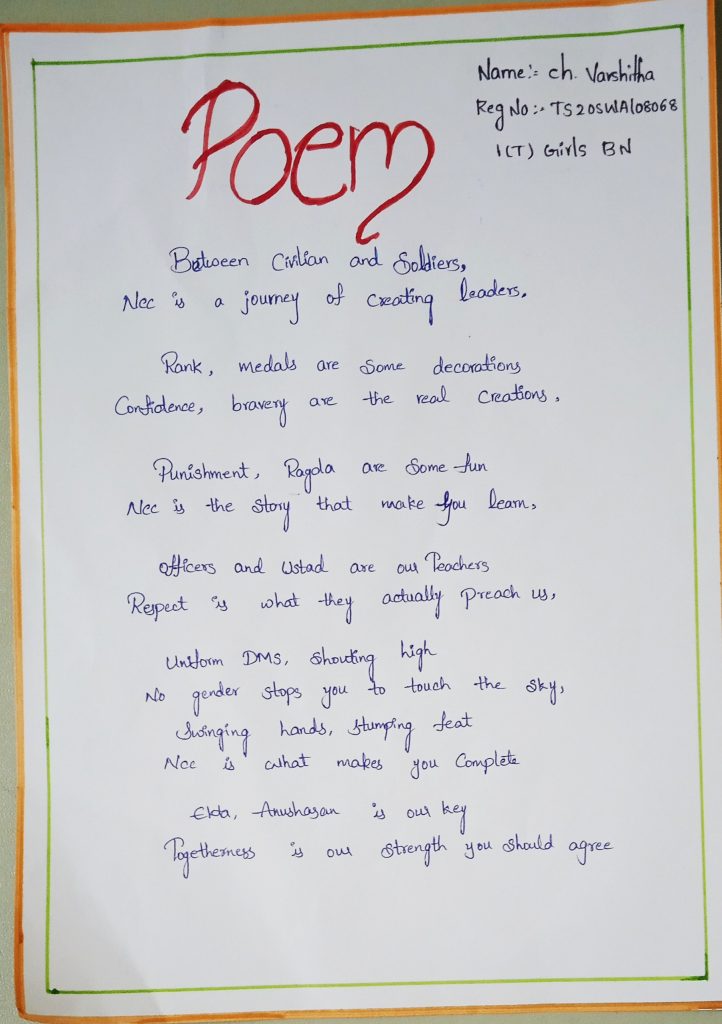 Name:- ch. Varshitha
Reg No:- TS20SWA108068
1(T) Girls BN
Poem
Between Civilian and Soldiers,
Ncc is a journey of Creating leaders.
Rank, medals are Some decorations
Confidence, bravery are the real Creations.
Punishment, Ragda are Some fun
Ncc is the Story that make you learn,
Officers and Ustad are our Teachers
Respect is what they actually Preach us,
Uniform DMS, Shouting high
No gender stops you to touch the sky,
Swinging hands, Stumping feat
Ncc is what makes you Complete
Ekta, Anushasan is our key
Togetherness is our Strength you Should agree